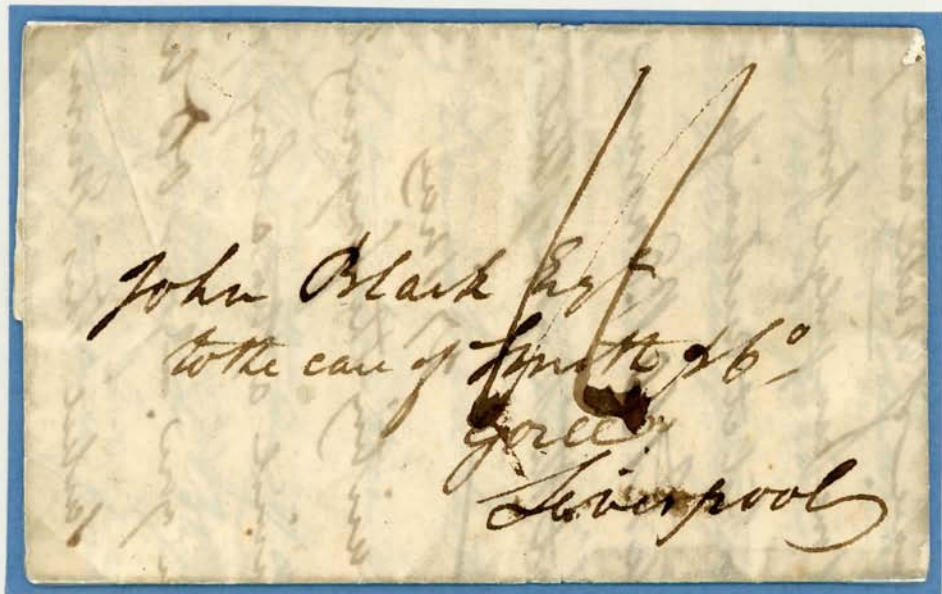 11
John Black Esqr
to the care of Smith & Co
Goree
Liverpool